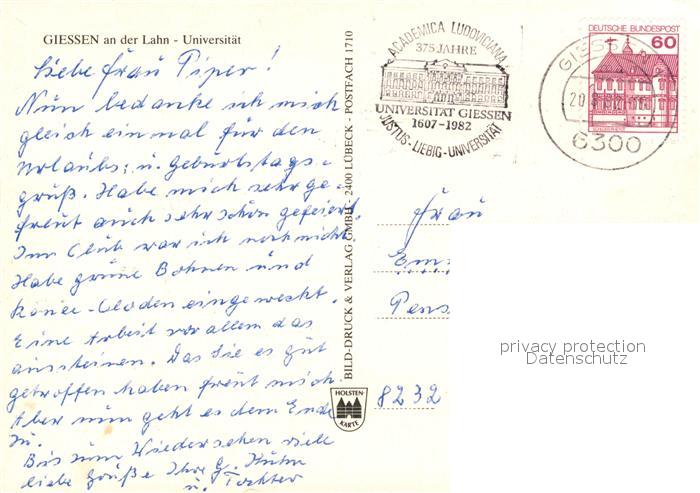 GIESSEN an der Lahn - Universität
Liebe Frau Piper!
Nun bedanke ich mich
gleich einmal für den
Urlaubs- u. Geburtstags-
gruß. Habe mich sehr ge-
freut auch sehr schön gefeiert.
Im Club war ich noch nicht.
Habe grüne Bohnen und
eingeweckt.
Eine Arbeit vor allem das
aussteinen. Das Sie es gut
getroffen haben freut mich.
Aber nun geht es dem Ende
zu.
Bis zum Wiedersehen viele
liebe Grüße Ihre G. Kühn
u. Tochter
BILD-DRUCK & VERLAG GMBH · 2400 LÜBECK · POSTFACH 1710
HOLSTEN
KARTE
ACADEMICA LUDOVICIANA
375 JAHRE
UNIVERSITÄT GIESSEN
1607-1982
JUSTUS-LIEBIG-UNIVERSITÄT
DEUTSCHE BUNDESPOST
60
6300
Frau
Em
Pens
8232
privacy protection
Datenschutz